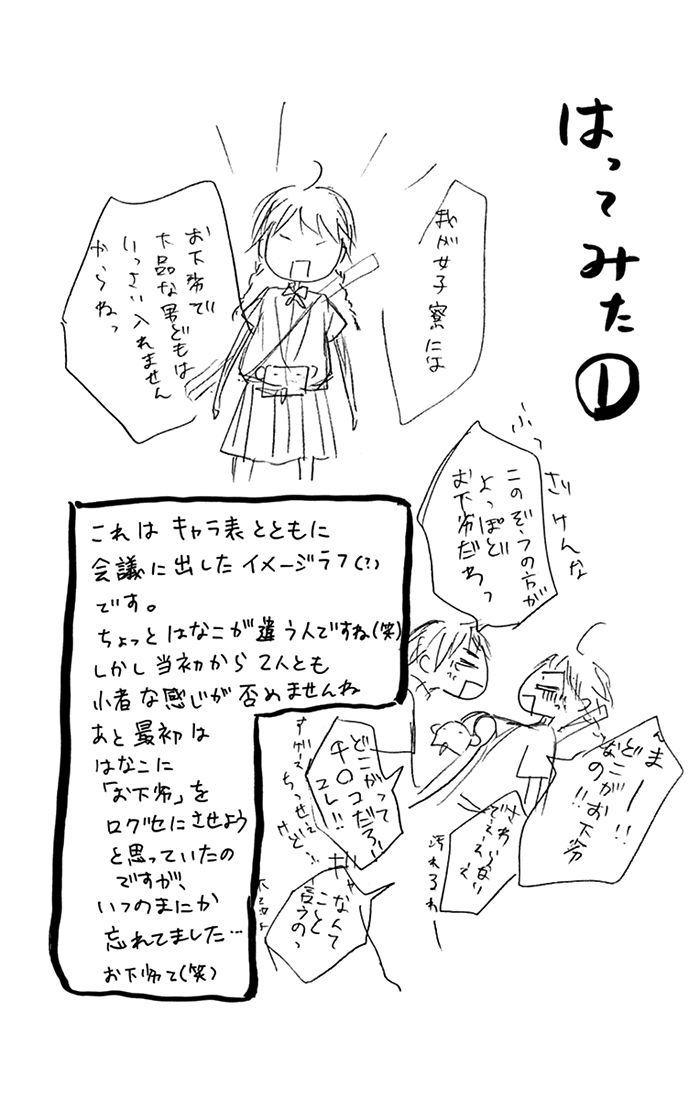 はってみた①
我が女子寮には
お下劣で
下品な男どもは
いっさい入れません
からねっ
ふっ
ざけんな
このぞうの方が
よっぽど
お下劣だわっ
んまー!!
どこがお下劣
なのが!!
さわらない
でええええ
汚れるわー
どこがって
チ○コだろ!!
コレ!!
ちっせぇ
けど…
ギャ
なんて
こと
言うのっ
これは キャラ表とともに
会議に出したイメージラフ(?)
です。
ちょっとはなこが違う人ですね(笑)
しかし当初から2人とも
小者な感じが否めませんね
あと最初は
はなこに
「お下劣」を
口グセにさせよう
と思っていたの
ですが、
いつのまにか
忘れてました…
お下劣て(笑)